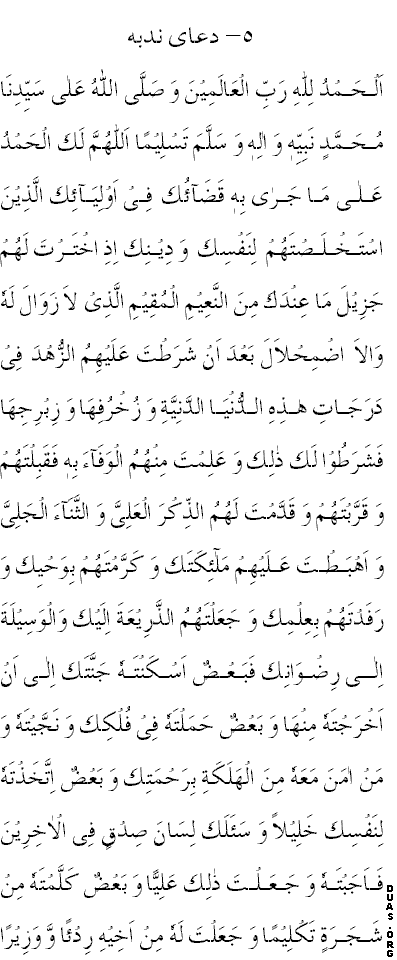 ٥– دعای ندبه
اَلْـحَـمْدُ لِلّٰهِ رَبِّ الْعَالَمِيْنَ وَ صَلَّى اللّٰهُ عَلٰى سَيِّدِنَا
مُـحَـمَّدٍ نَبِيِّهٖ وَ اٰلِهٖ وَ سَلَّمَ تَسْلِيْمًا اَللّٰهُمَّ لَكَ الْحَمْدُ
عَـلٰـى مَـا جَـرٰى بِهٖ قَضَآؤُكَ فِـىْ اَوْلِيَـآئِكَ الَّذِيْنَ
اسْـتَـخْـلَـصْتَهُمْ لِنَفْسِكَ وَ دِيْـنِكَ اِذِ اخْتَـرْتَ لَهُمْ
جَزِيْلَ مَا عِنْدَكَ مِنَ النَّعِيْمِ الْمُقِيْمِ الَّذِىْ لاَ زَوَالَ لَهٗ
وَالاَ اضْمِحْلاَلَ بَعْدَ اَنْ شَرَطْتَ عَلَيْهِمُ الزُّهْدَ فِىْ
دَرَجَـاتِ هٰـذِهِ الـدُّنْيَـا الدَّنِيَّةِ وَ زُخْرُفِهَا وَ زِبْرِجِهَا
فَشَرَطُوْا لَكَ ذٰلِكَ وَ عَلِمْتَ مِنْهُمُ الْوَفَآءَ بِهٖ فَقَبِلْتَهُمْ
وَ قَرَّبْتَهُمْ وَ قَدَّمْتَ لَهُمُ الذِّكْرَ الْعَلِىَّ وَ الثَّنَآءَ الْجَلِىَّ
وَ اَهْبَـطْـتَ عَـلَيْهِمْ مَلٰٓئِكَتَكَ وَ كَرَّمْتَهُمْ بِوَحْيِكَ وَ
رَفَدْتَهُمْ بِعِلْمِكَ وَ جَعَلْتَهُمُ الذَّرِيْعَةَ اِلَيْكَ وَالْوَسِيْلَةَ
اِلٰـى رِضْـوَانِـكَ فَبَـعْـضٌ اَسْـكَنْتَـهٗ جَنَّتَكَ اِلٰـى اَنْ
اَخْرَجْتَهٗ مِنْهَا وَ بَعْضٌ حَمَلْتَهٗ فِىْ فُلْكِكَ وَ نَجَّيْتَهٗ وَ
مَنْ اٰمَنَ مَعَهٗ مِنَ الْهَلَكَةِ بِرَحْمَتِكَ وَ بَعْضٌ اِتَّخَذْتَهٗ
لِنَفْسِكَ خَلِيْلاً وَ سَئَلَكَ لِسَانَ صِدْقٍ فِى الْاٰخِرِيْنَ
فَـاَجَبْتَـهٗ وَ جَـعَـلْـتَ ذٰلِكَ عَلِيًّا وَ بَعْضٌ كَلَّمْتَهٗ مِنْ
شَـجَـرَةٍ تَكْلِيْمًا وَ جَعَلْتَ لَهٗ مِنْ اَخِيْهِ رِدْئًا وَّ وَزِيْرًا
DUAS.ORG